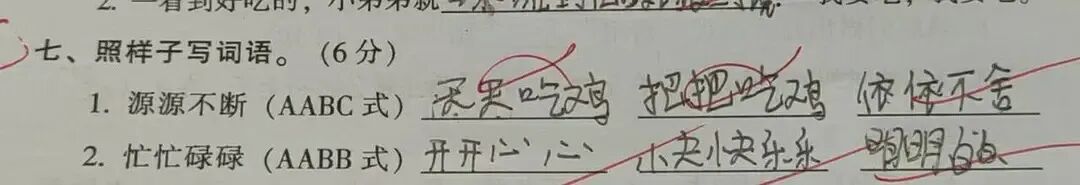 2. 一看到好吃的，小弟弟就
七、照样子写词语。（6 分）
1. 源源不断（AABC 式） 天天吃鸡 把把吃鸡 依依不舍
2. 忙忙碌碌（AABB 式） 开开心心 快快乐乐 明明白白